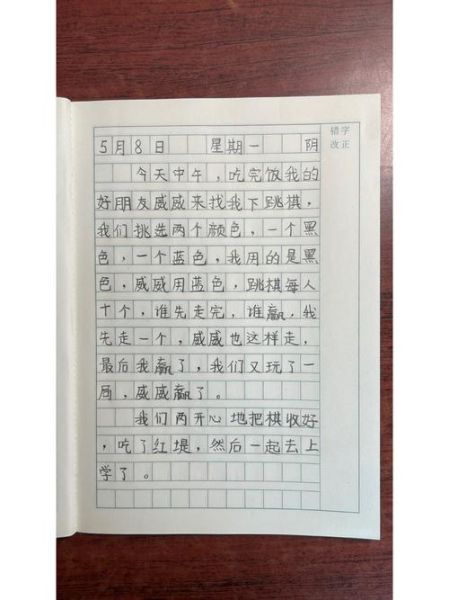 错字
改正
5月8日 星期一 阴
今天中午，吃完饭我的
好朋友威威来找我下跳棋，
我们挑选两个颜色，一个黑
色，一个蓝色，我用的是黑
色，威威用蓝色，跳棋每人
十个，谁先走完，谁赢，我
先走一个，威威也这样走，
最后我赢了，我们又玩了一
局，威威赢了。
我们两开心地把棋收好
，吃了红堤，然后一起去上
学了。